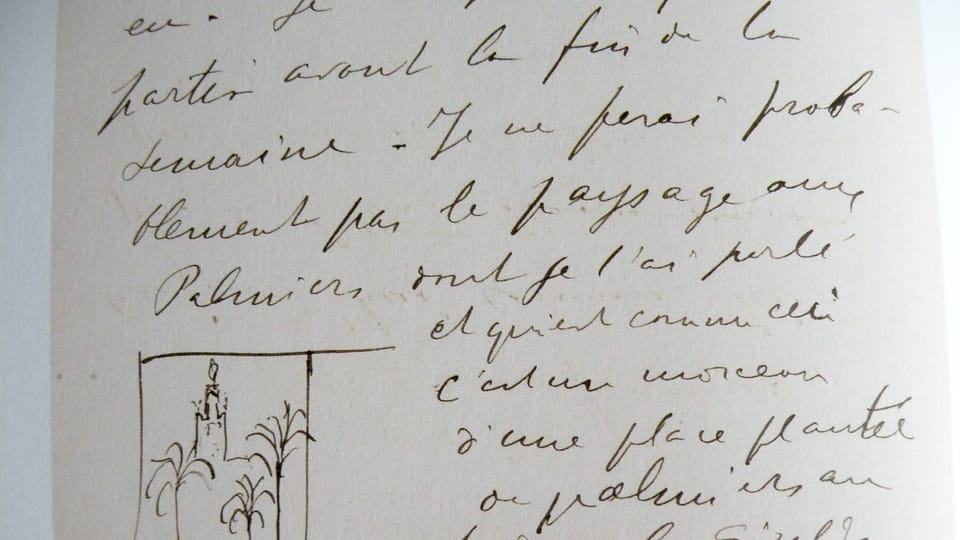 en. Je
partir avant la fin de la
semaine. Je ne ferai proba-
blement pas le paysage aux
Palmiers dont je t'ai parlé
et qui est comme ceci
c'est un morceau
d'une place plantée
de palmiers au